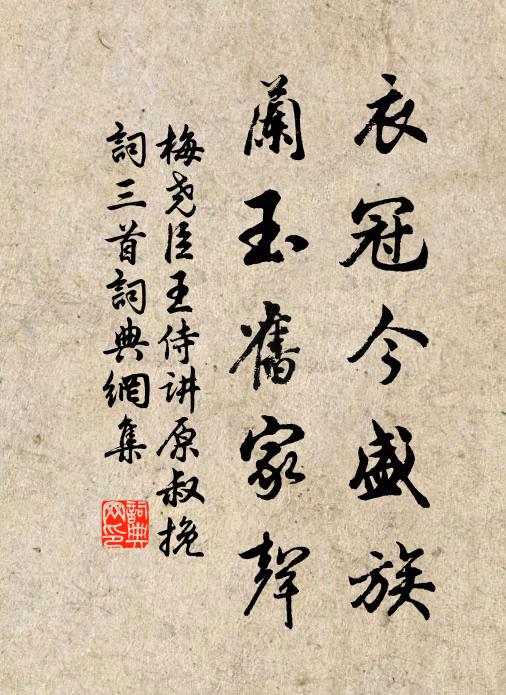 衣冠今盛族
蘭玉舊家聲
梅尧臣王侍讲原叔挽
詞三首詞典網集
詞典
网印